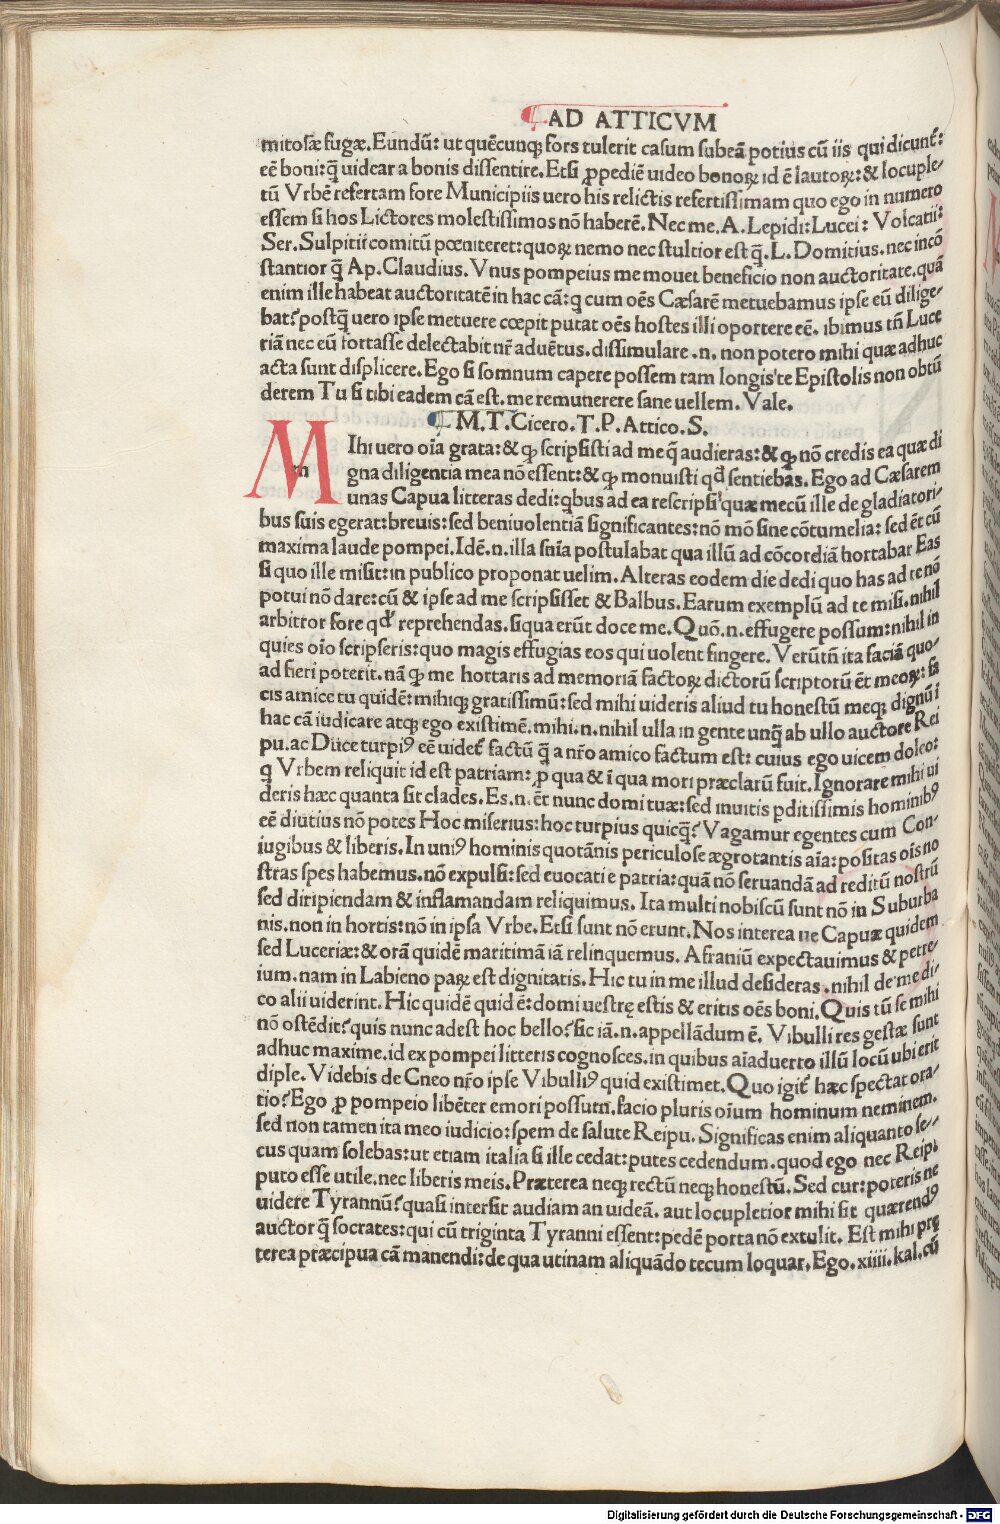 AD ATTICVM
mitosæ fugæ.Eundū: ut quēcunq; fors tulerit casum subeā potius cū iis qui dicunt̄:
eē boni:q̄ uidear a bonis dissentire.Etsi ꝓpediē uideo bonoꝝ id ē lautoꝝ:& locuple⸗
tū Vrbē refertam fore Municipiis uero his relictis refertissimam quo ego in numero
essem si hos Lictores molestissimos nō haberē.Nec me.A.Lepidi:Lucei: Volcatii:
Ser.Sulpitii comitū pœniteret:quoꝝ nemo nec stultior est q̄.L.Domitius.nec incō
stantior q̄ Ap.Claudius.Vnus pompeius me mouet beneficio non auctoritate.quā
enim ille habeat auctoritatē in hac cā:q cum oēs Cæsarē metuebamus ipse eū dilige⸗
bat? postq̄ uero ipse metuere cœpit putat oēs hostes illi oportere eē. ibimus tn̄ Luce
riā nec eū fortasse delectabit nr̄ aduētus.dissimulare.n. non potero mihi quæ adhuc
acta sunt displicere.Ego si somnum capere possem tam longis te Epistolis non obtū
derem Tu si tibi eadem cā est.me remunerere sane uellem.Vale.
M.T.Cicero.T.P.Attico.S.
MIhi uero oīa grata:& ꝙ scripsisti ad me q̄ audieras:& ꝙ nō credis ea quæ di
m gna diligentia mea nō essent:& ꝙ monuisti qd̄ sentiebas.Ego ad Cæsarem
unas Capua litteras dedi:qbus ad ea rescripsi quæ mecū ille de gladiatori⸗
bus suis egerat:breuis:sed beniuolentiā significantes:nō mō sine cōtumelia: sed ēt cū
maxima laude pompei.Idē.n.illa snīa postulabat qua illū ad cōcordiā hortabar Eas
si quo ille misit:in publico proponat uelim.Alteras eodem die dedi quo has ad te nō
potui nō dare:cū & ipse ad me scripsisset & Balbus.Earum exemplū ad te misi.nihil
arbitror fore qd̄ reprehendas.siqua erūt doce me.Quō.n.effugere possum:nihil in
quies oīo scripseris:quo magis effugias eos qui uolent fingere.Verūtn̄ ita faciā quo⸗
ad fieri poterit.nā ꝙ me hortaris ad memoriā factoꝝ dictorū scriptorū ēt meoꝝ: fa
cis amice tu quidē:mihiq; gratissimū:sed mihi uideris aliud tu honestū meq; dignū ī
hac cā iudicare atq; ego existimē.mihi.n.nihil ulla in gente unq̄ ab ullo auctore Rei
pu.ac Duce turpiꝰ eē uidet̄ factū q̄ a nr̄o amico factum est: cuius ego uicem doleo:
q Vrbem reliquit id est patriam: ꝓ qua & ī qua mori præclarū fuit.Ignorare mihi ui
deris hæc quanta sit clades.Es.n.ēt nunc domi tuæ:sed inuitis ꝑditissimis hominibꝰ
eē diutius nō potes Hoc miserius:hoc turpius quicq̄? Vagamur egentes cum Con⸗
iugibus & liberis.In uniꝰ hominis quotānis periculose ægrotantis aīa:positas oīs no
stras spes habemus.nō expulsi:sed euocati e patria:quā nō seruandā ad reditū nostrū
sed diripiendam & inflamandam reliquimus. Ita multi nobiscū sunt nō in Suburba
nis.non in hortis:nō in ipsa Vrbe.Etsi sunt nō erunt.Nos interea ne Capuæ quidem
sed Luceriæ:& orā quidē maritimā iā relinquemus.Afraniū expectauimus & petre⸗
ium.nam in Labieno paꝝ est dignitatis.Hic tu in me illud desideras.nihil de me di⸗
co alii uiderint.Hic quidē quid ē:domi uestrę estis & eritis oēs boni.Quis tū se mihi
nō ostēdit? quis nunc adest hoc bello? sic iā.n.appellādum ē. Vibulli res gestæ sunt
adhuc maxime.id ex pompei litteris cognosces.in quibus aīaduerto illū locū ubi erit
diple.Videbis de Cneo nr̄o ipse Vibulliꝰ quid existimet.Quo igit̄ hæc spectat ora⸗
tio? Ego ꝓ pompeio libēter emori possum.facio pluris oīum hominum neminem.
sed non tamen ita meo iudicio:spem de salute Reipu.Significas enim aliquanto se⸗
cus quam solebas:ut etiam italia si ille cedat:putes cedendum.quod ego nec Reip̄i
puto esse utile.nec liberis meis.Præterea neq; rectū neq; honestū.Sed cur:poteris ne
uidere Tyrannū? quasi intersit audiam an uideā. aut locupletior mihi sit quærendꝰ
auctor q̄ socrates:qui cū triginta Tyranni essent:pedē porta nō extulit. Est mihi prę
terea præcipua cā manendi:de qua utinam aliquādo tecum loquar.Ego.xiiii.kal.cū
Digitalisierung gefördert durch die Deutsche Forschungsgemeinschaft - DFG